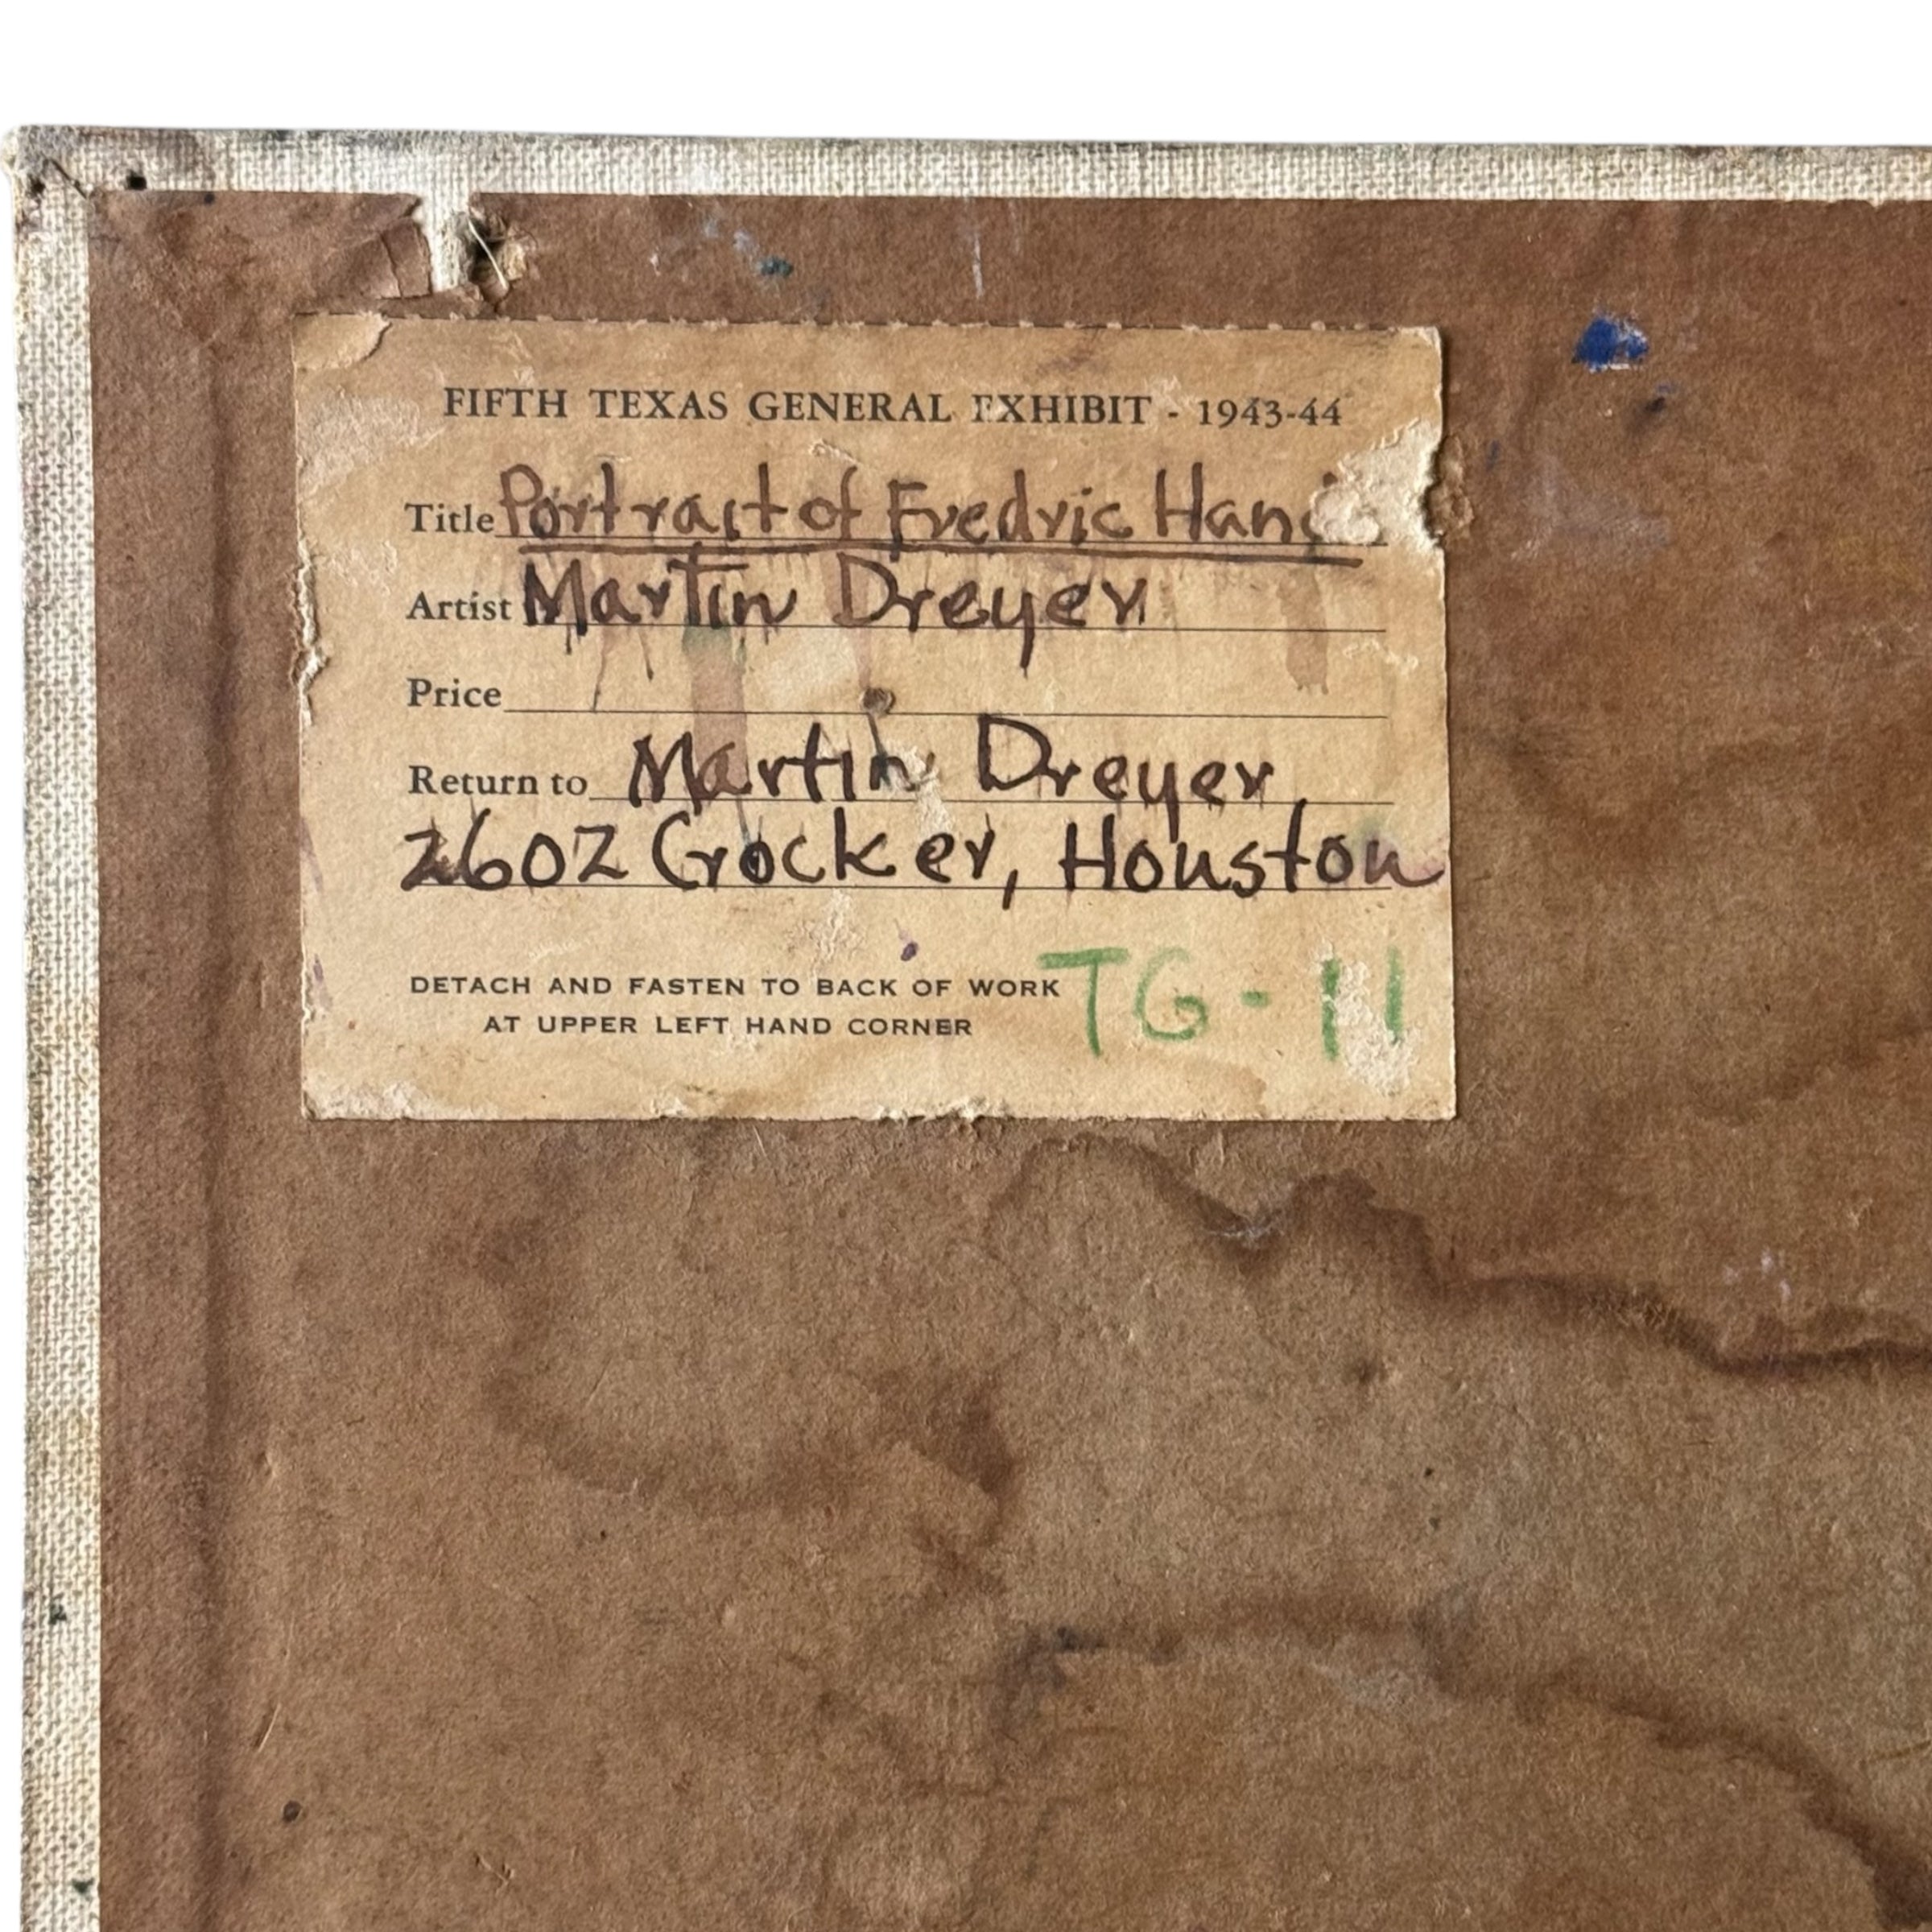 FIFTH TEXAS GENERAL EXHIBIT - 1943-44
Title Portrait of Fredric
Artist Martin Dreyer
Price
Return to Martin Dreyer,
2602 Crocker, Houston
DETACH AND FASTEN TO BACK OF WORK
AT UPPER LEFT HAND CORNER
TG-11